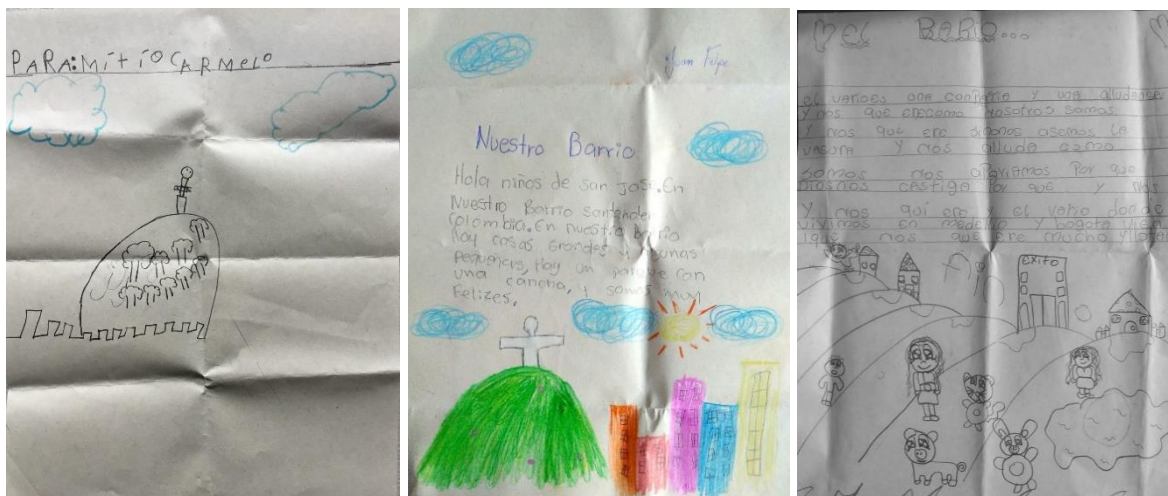 PARA:MI tIO CARMELO
Juan Felipe
Nuestro Barrio
Hola niños de san José.En
Nuestro Barrio santander
colombia.En nuestro barrio
hay casas Grandes y unas
pequeñas, Hay un parque con
una cancha, y somos muy
Felizes.
el BARIO...
el varioes una conpañia y una
y nos que erecomo nosotros somos
y nos que ere sinonos asemos la
vasura y nos allude como
somos nos apollamos Por que
diosnos castiga Por que y nos
y nos qui ere y el vario donde
vivimos en medellin y bogota
nos que ere mucho
EXITO